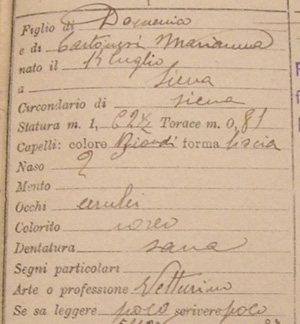 Figlio di Domenico
e di Marianna
nato il luglio
a Siena
Circondario di Siena
Statura m. 1, 62½ Torace m. 0, 81
Capelli: colore Biondi forma liscia
Naso
Mento
Occhi cerulei
Colorito roseo
Dentatura sana
Segni particolari
Arte o professione Vetturino
Se sa leggere poco scrivere poco